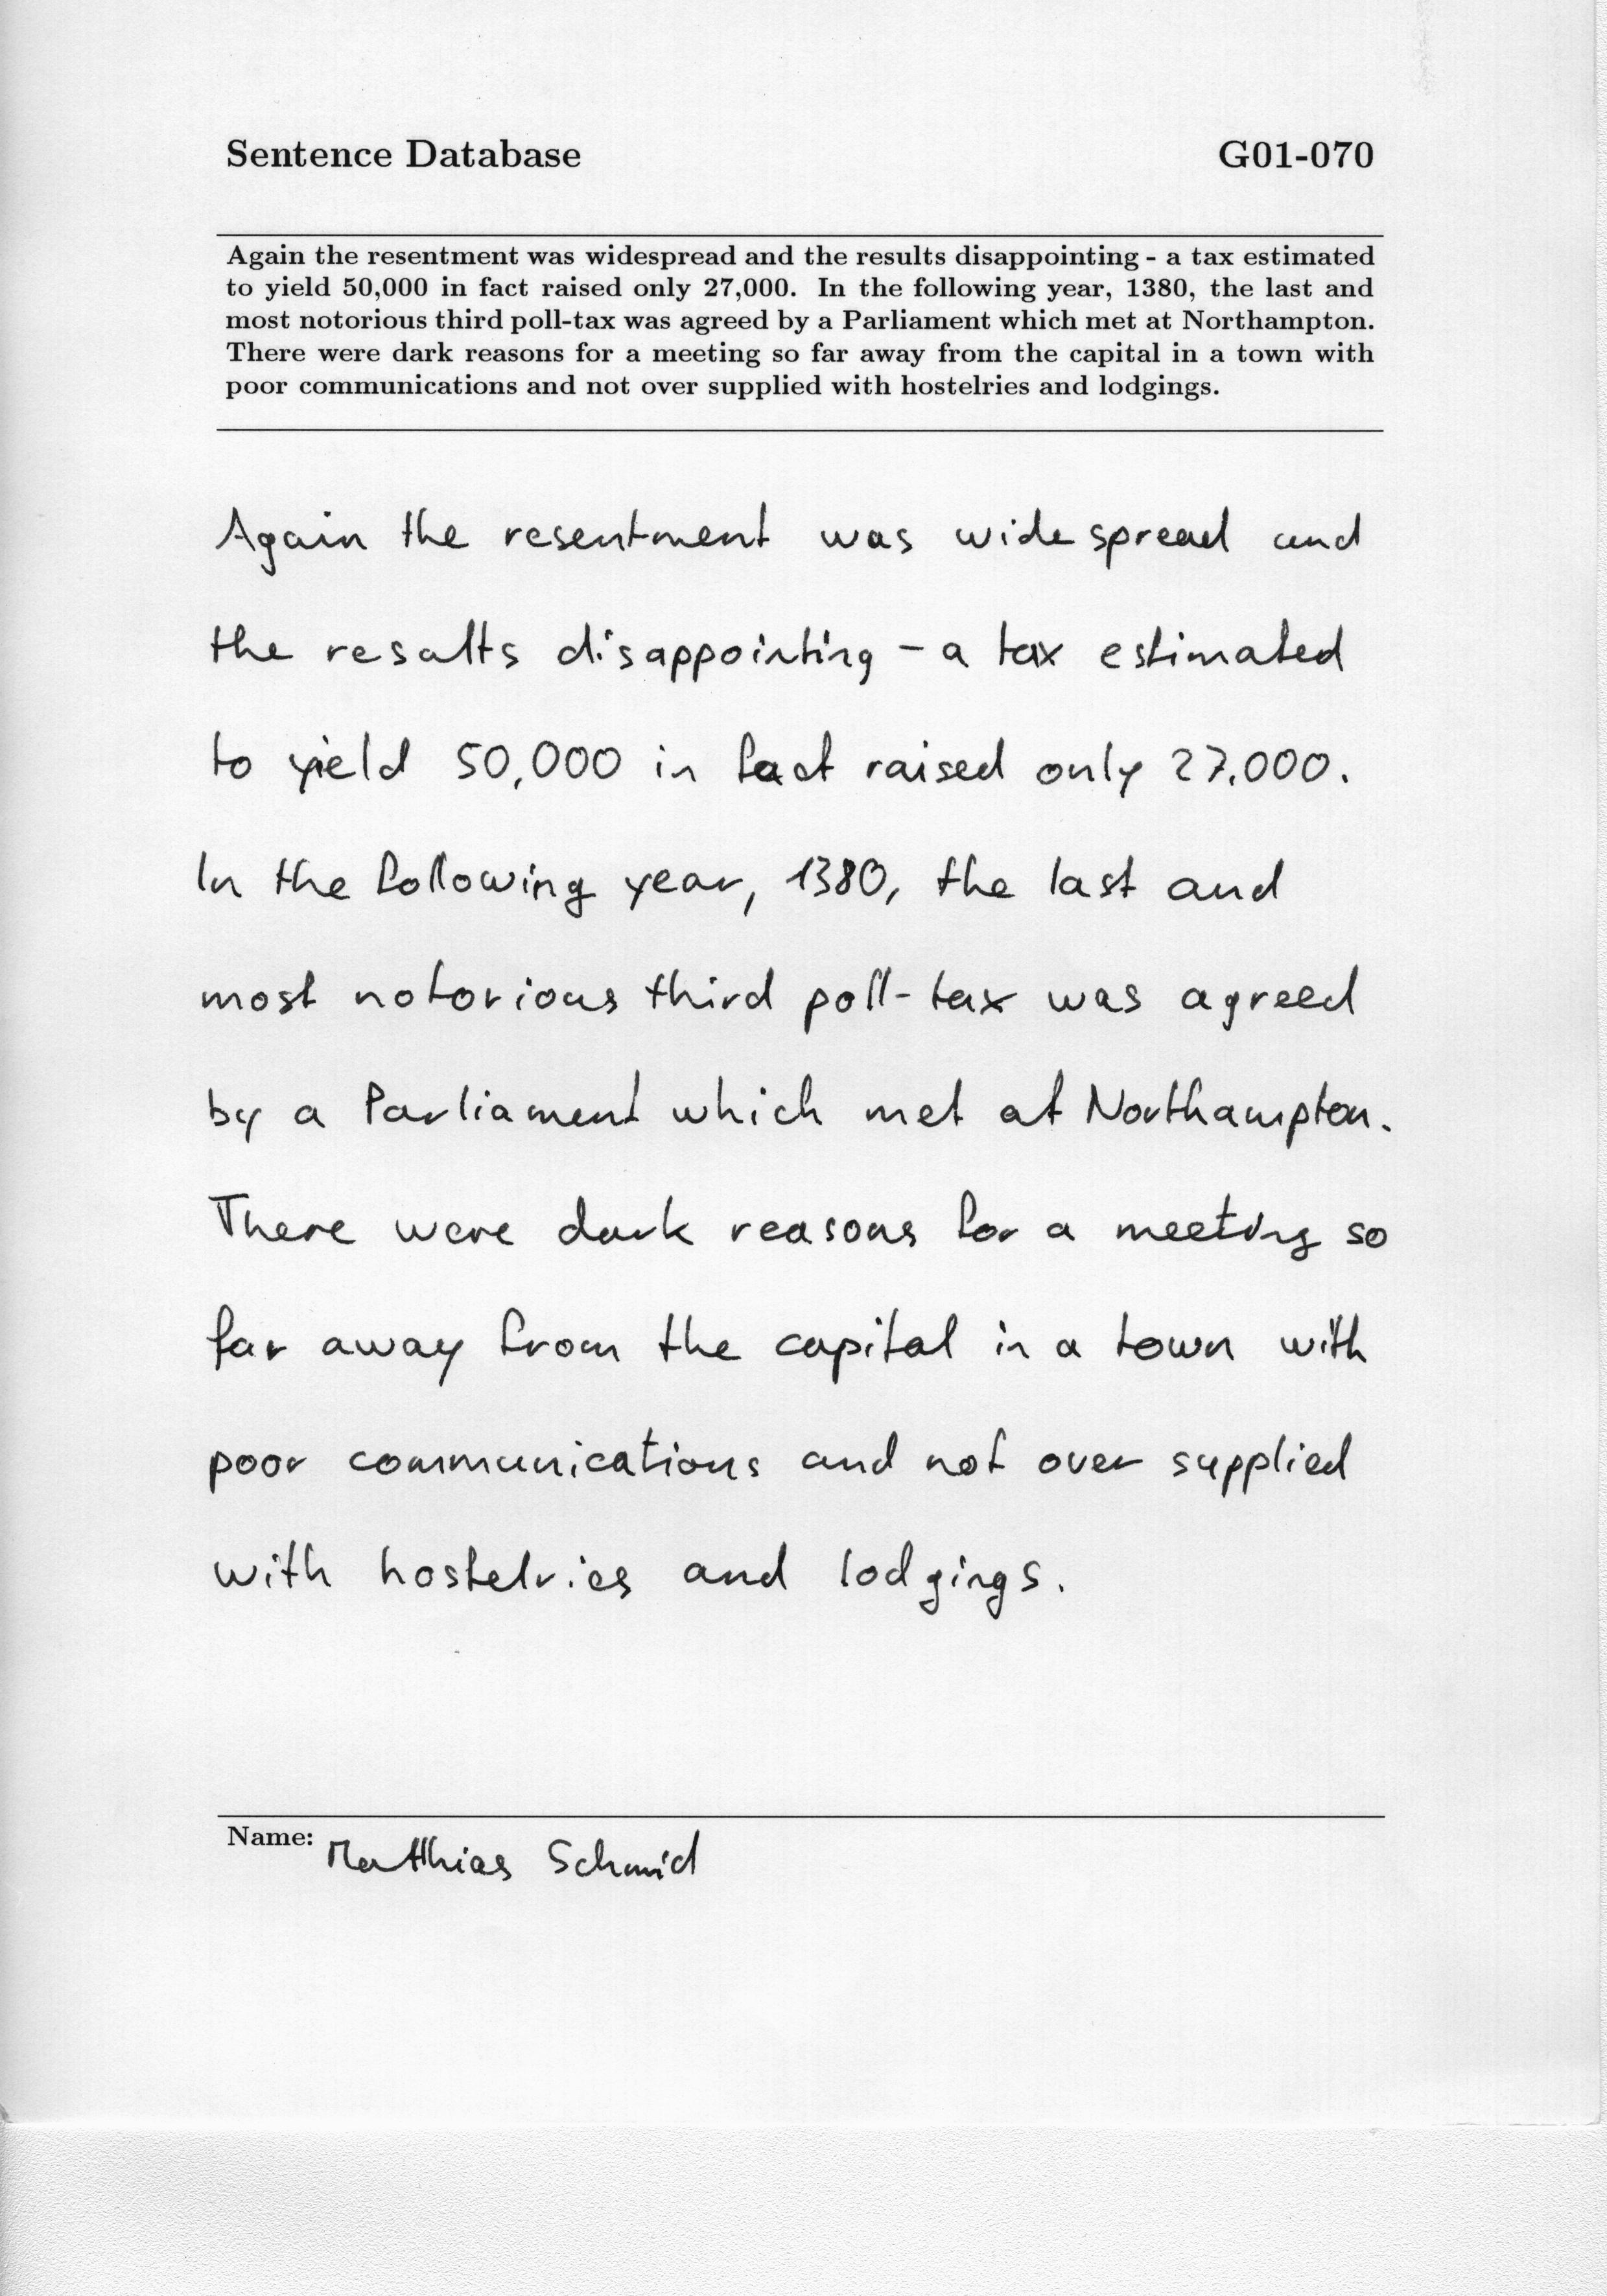 Sentence Database G01-070
Again the resentment was widespread and the results disappointing - a tax estimated
to yield 50,000 in fact raised only 27,000. In the following year, 1380, the last and
most notorious third poll-tax was agreed by a Parliament which met at Northampton.
There were dark reasons for a meeting so far away from the capital in a town with
poor communications and not over supplied with hostelries and lodgings.
Again the resentment was widespread and
the results disappointing - a tax estimated
to yield 50,000 in fact raised only 27,000.
In the following year, 1380, the last and
most notorious third poll-tax was agreed
by a Parliament which met at Northampton.
There were dark reasons for a meeting so
far away from the capital in a town with
poor communications and not over supplied
with hostelries and lodgings.
Name: Matthias Schmid